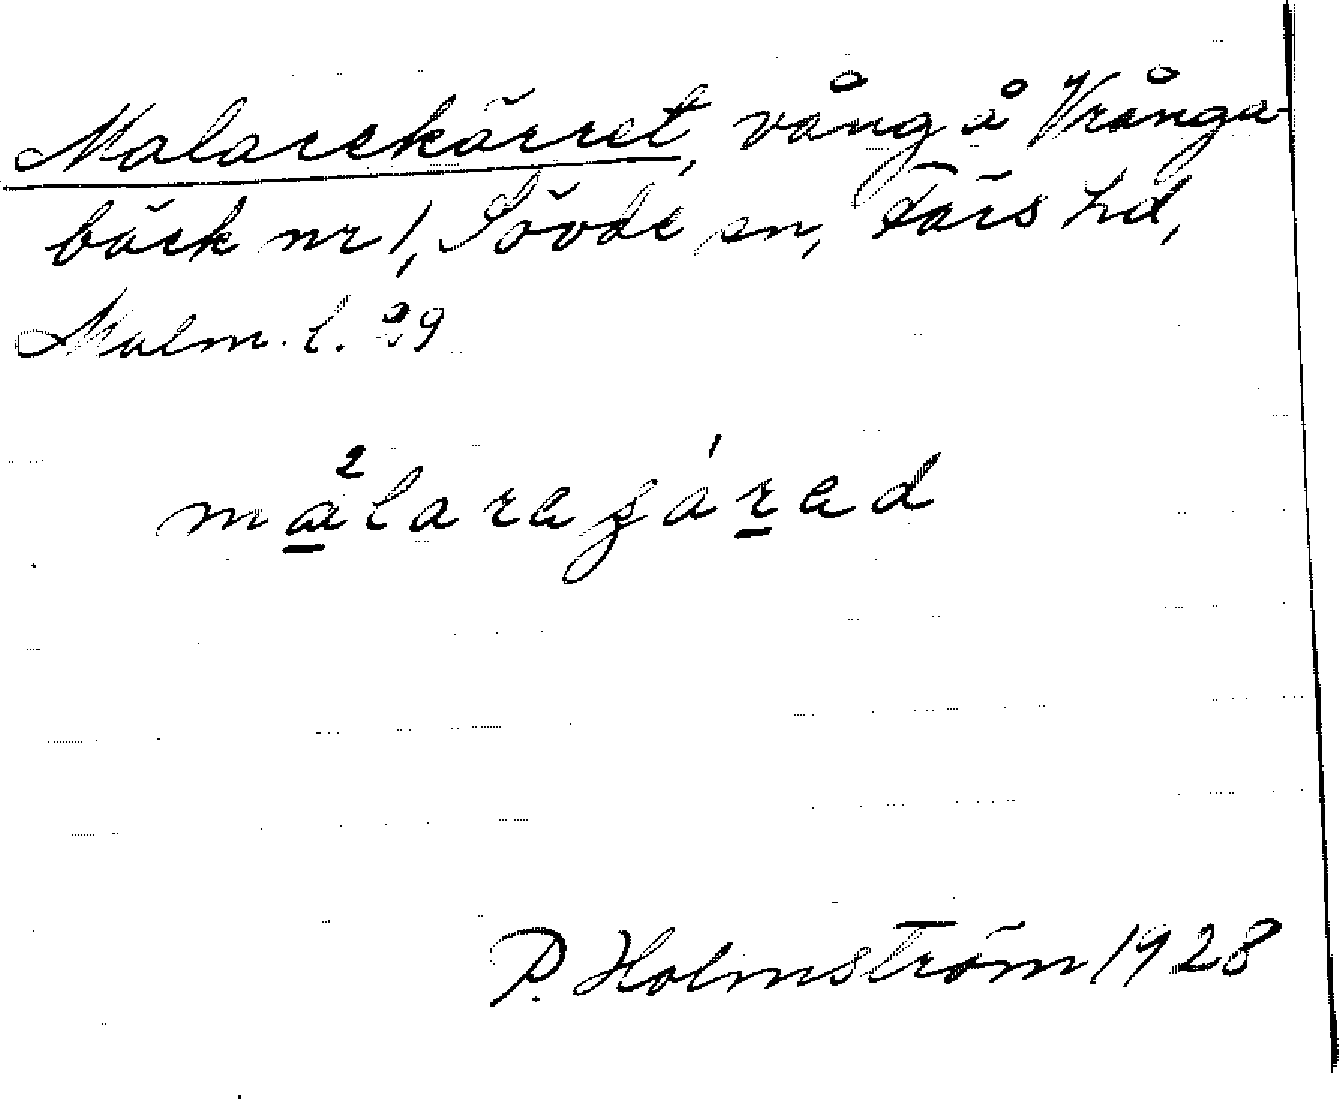 Malarekärret, vång å Vrånga-
bäck nr 1, Sövde sn, Färs hd,
Malm. l. 29
målaregárad
P. Holmström 1928